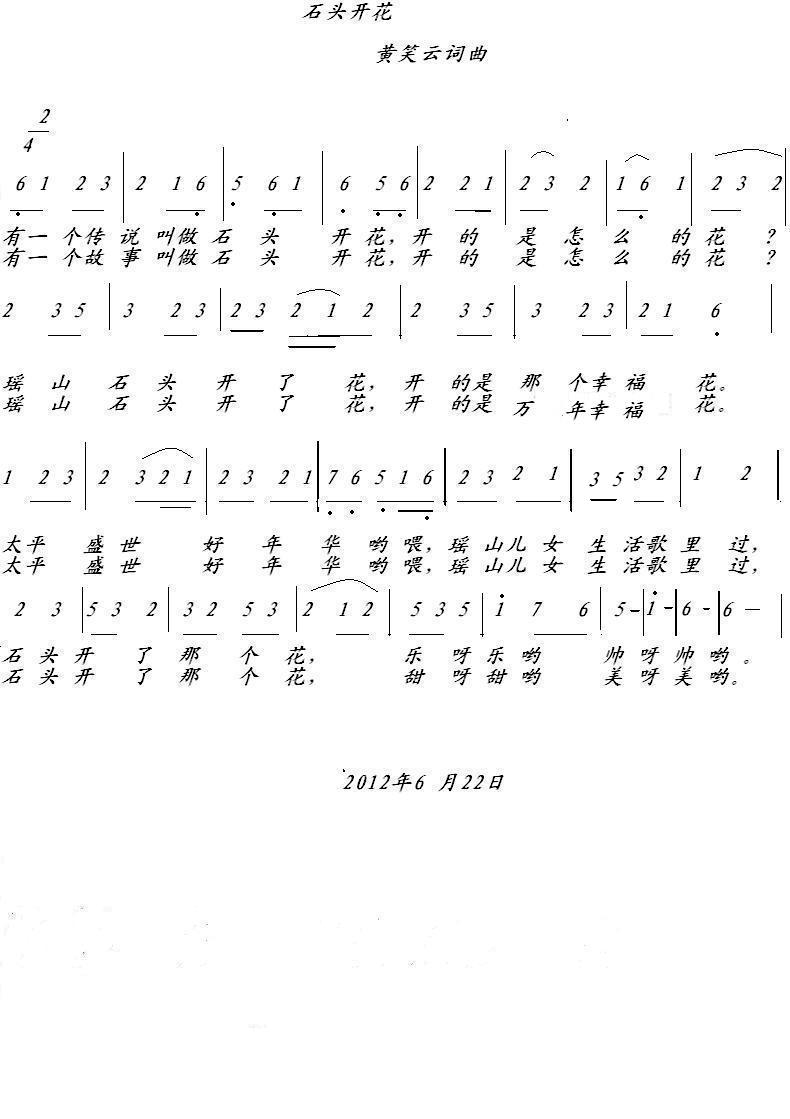 石头开花
黄笑云词曲
2
4
6 1 2 3 | 2 1 6 | 5 6 1 | 6 5 6 | 2 2 1 | 2 3 2 | 1 6 1 | 2 3 2 |
有一个传说叫做石头开花，开的是怎么的花？
有一个故事叫做石头开花，开的是怎么的花？
2 3 5 | 3 2 3 | 2 3 2 1 2 | 2 3 5 | 3 2 3 | 2 1 6 |
瑶山石头开了花，开的是那个幸福花。
瑶山石头开了花，开的是万年幸福花。
1 2 3 | 2 3 2 1 | 2 3 2 1 | 7 6 5 1 6 | 2 3 2 1 | 3 5 3 2 | 1 2 |
太平盛世好年华哟喂，瑶山儿女生活歌里过，
太平盛世好年华哟喂，瑶山儿女生活歌里过，
2 3 | 5 3 2 | 3 2 5 3 | 2 1 2 | 5 3 5 | 1 7 6 | 5 - | 1 - | 6 - | 6 — |
石头开了那个花，乐呀乐哟帅呀帅哟。
石头开了那个花，甜呀甜哟美呀美哟。
2012年6月22日